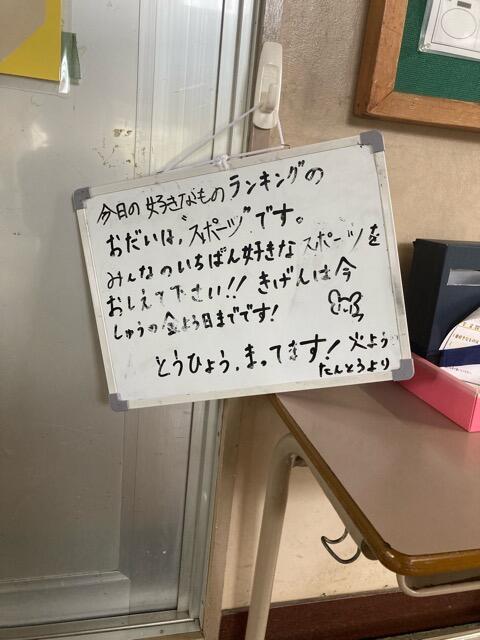 今日の好きなものランキングの
おだいは、"スポーツ"です。
みんなのいちばん好きなスポーツを
おしえて下さい!! きげんは今
しゅうの金よう日までです!
とうひょう、まってます! 火よう
たんとうより